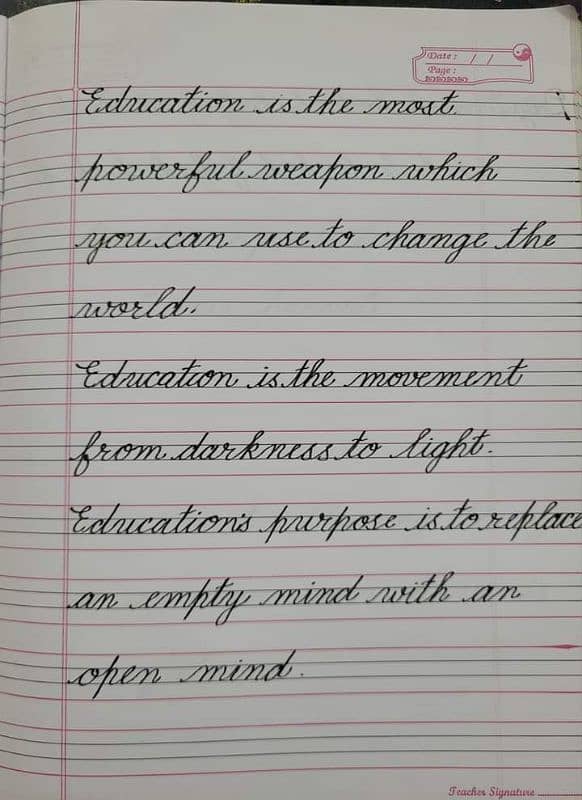 Date: / /
Page:
Education is the most
powerful weapon which
you can use to change the
world.
Education is the movement
from darkness to light.
Education's purpose is to replace
an empty mind with an
open mind.
Teacher Signature